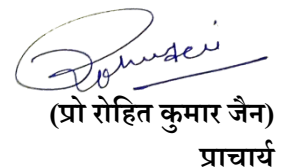 (प्रो रोहित कुमार जैन)
प्राचार्य